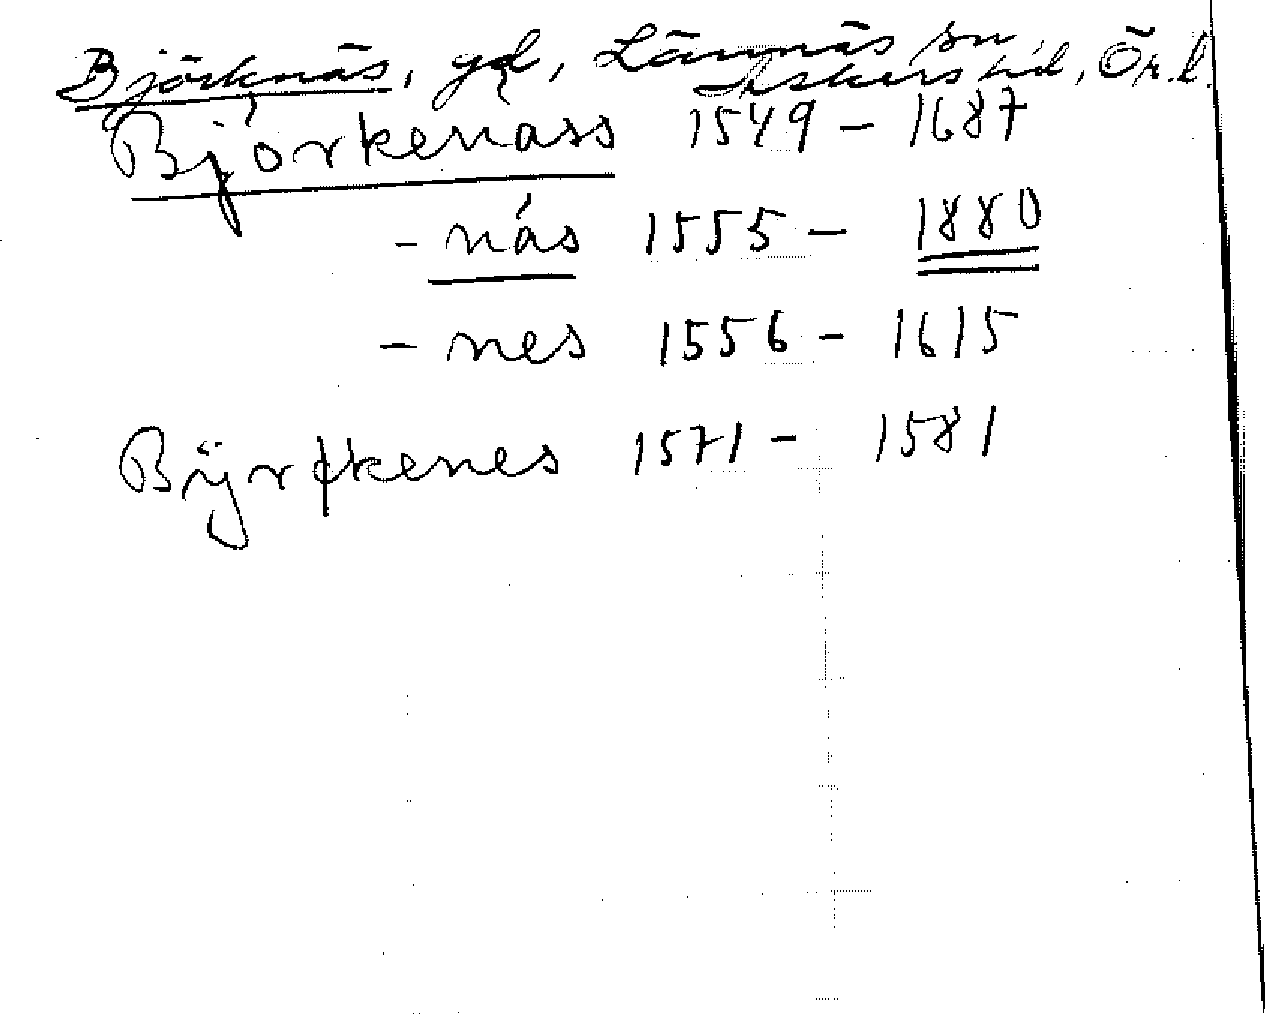 Björknäs, gd, Lännäs sn,
Askers hd, Ör. l.
Björkenäss 1549 - 1687
- näs 1555 - 1880
- nes 1556 - 1615
Bÿrkenes 1571 - 1581